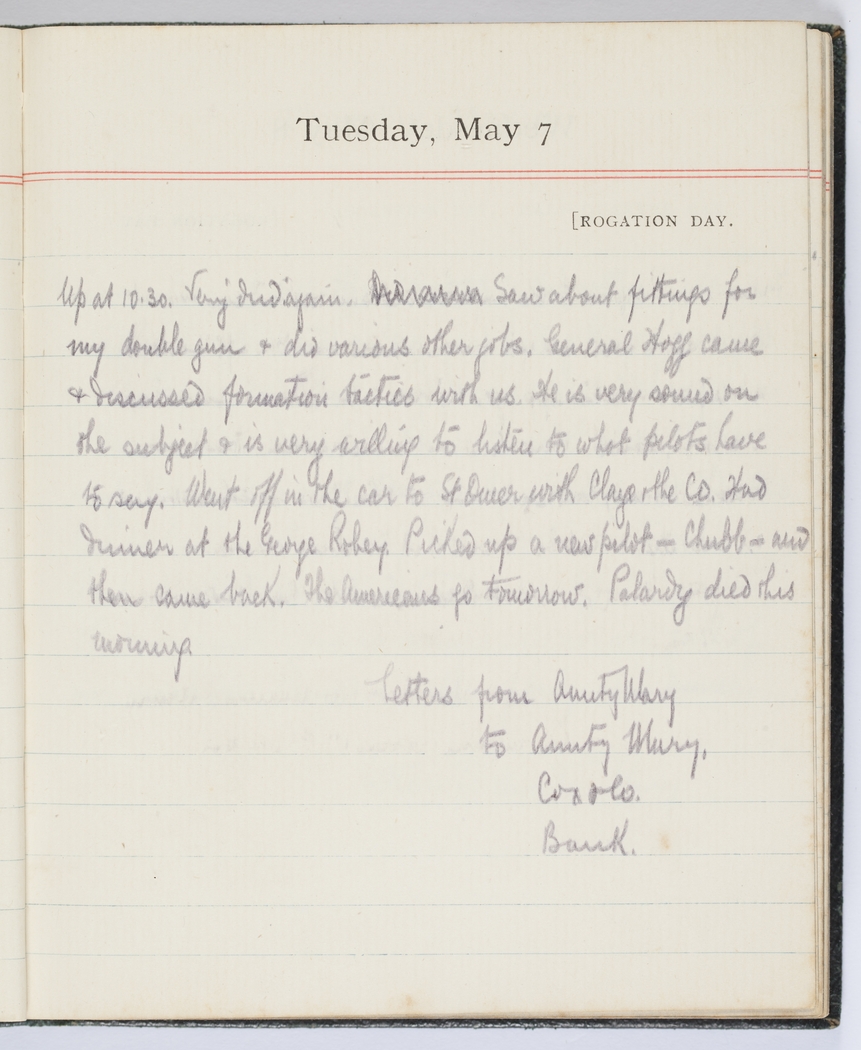 Tuesday, May 7
[ROGATION DAY.
Up at 10.30. Very dud again. Saw about fittings for
my double gun & did various other jobs. General Hogg came
& discussed formation tactics with us. He is very sound on
the subject & is very willing to listen to what pilots have
to say. Went off in the car to St Omer with Claye & the Co. Had
dinner at the George Robey. Picked up a new pilot – Chubb – and
then came back. The Americans go tomorrow. Palardy died this
morning.
Letters from Aunty Mary
to Aunty Mary,
Cox & Co.
Bank.